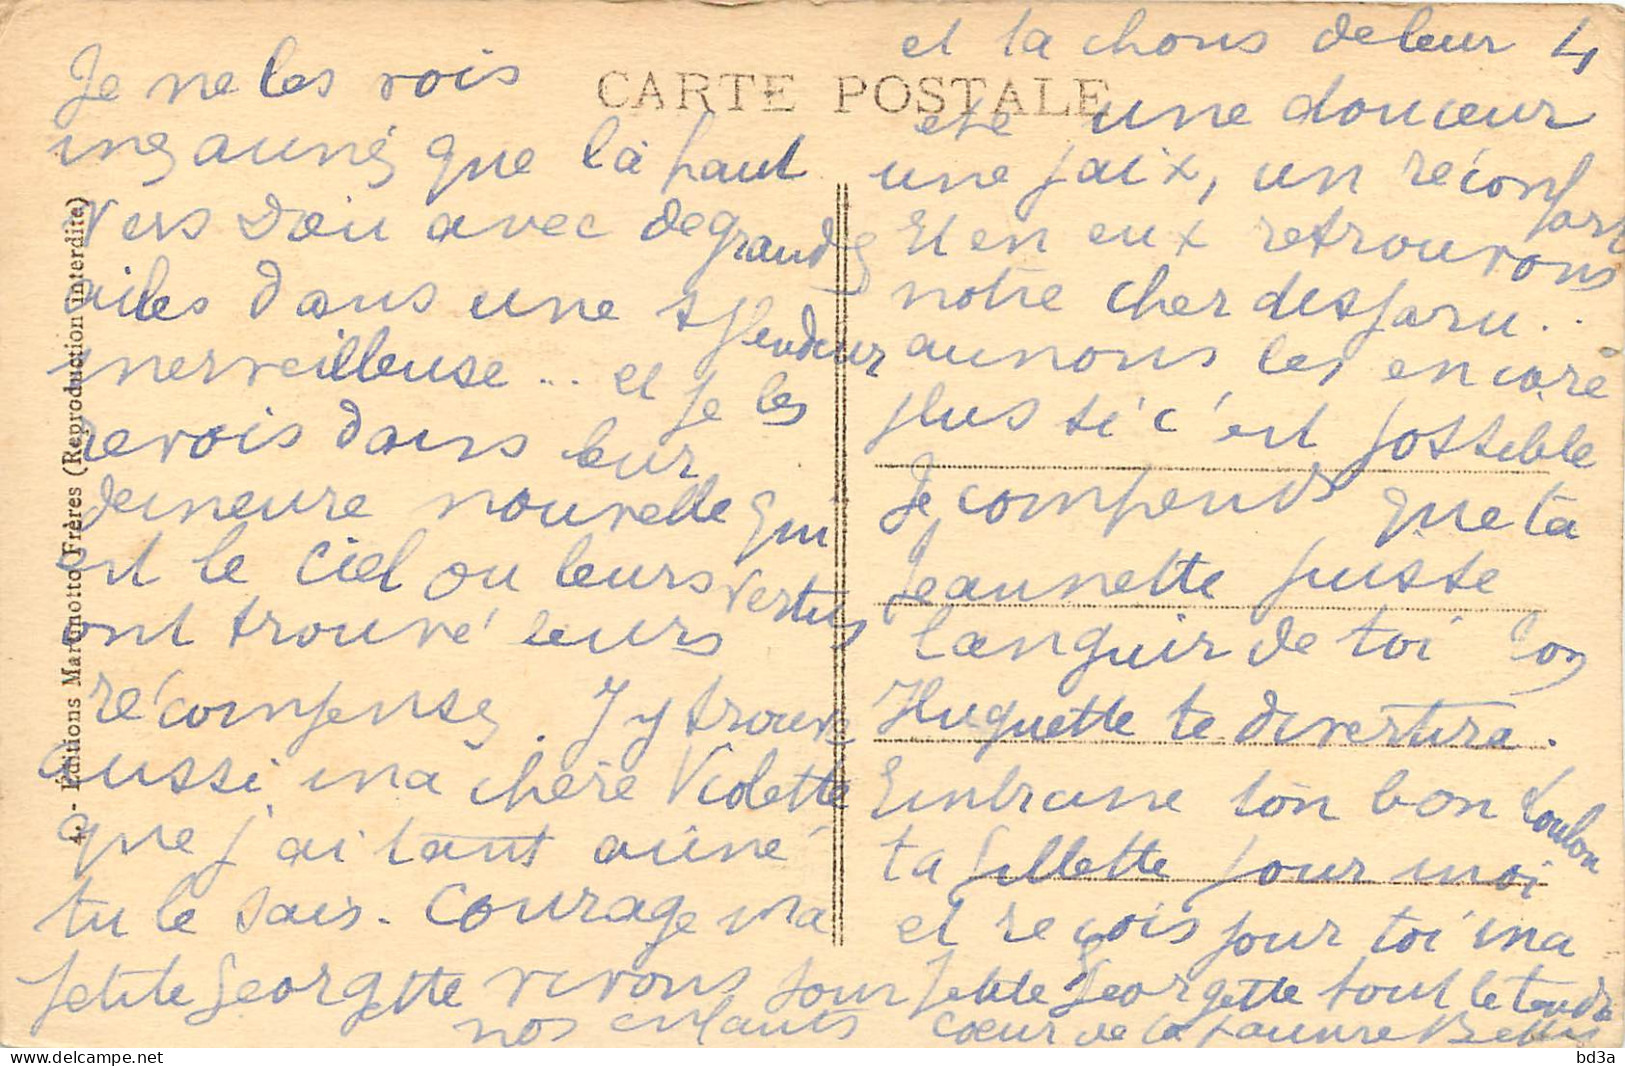 CARTE POSTALE
4. - Éditions Martinotto Frères (Reproduction interdite)
Je ne les vois
ines aunés que là haut
vers Dieu avec de grandes
ailes dans une splendeur
merveilleuse ... et je les
revois dans leur
demeure nouvelle qui
est le ciel ou leurs vertus
ont trouvé leurs
récompenses. J'y trouve
aussi ma chère Violette
que j'ai tant aimé
tu le sais. Courage ma
petite Georgette vivons pour
nos enfants
et tachons de leur
etre une douceur
une paix, un réconfort
Et en eux retrouvons
notre cher disparu..
aimons les encore
plus si c'est possible
Je comprends que ta
Jeannette puisse
languir de toi ton
Huguette te divertira.
Embrasse ton bon Loulou
ta fillette pour moi
et reçois pour toi ma
petite Georgette tout le tendre
cœur de la pauvre
bd3a